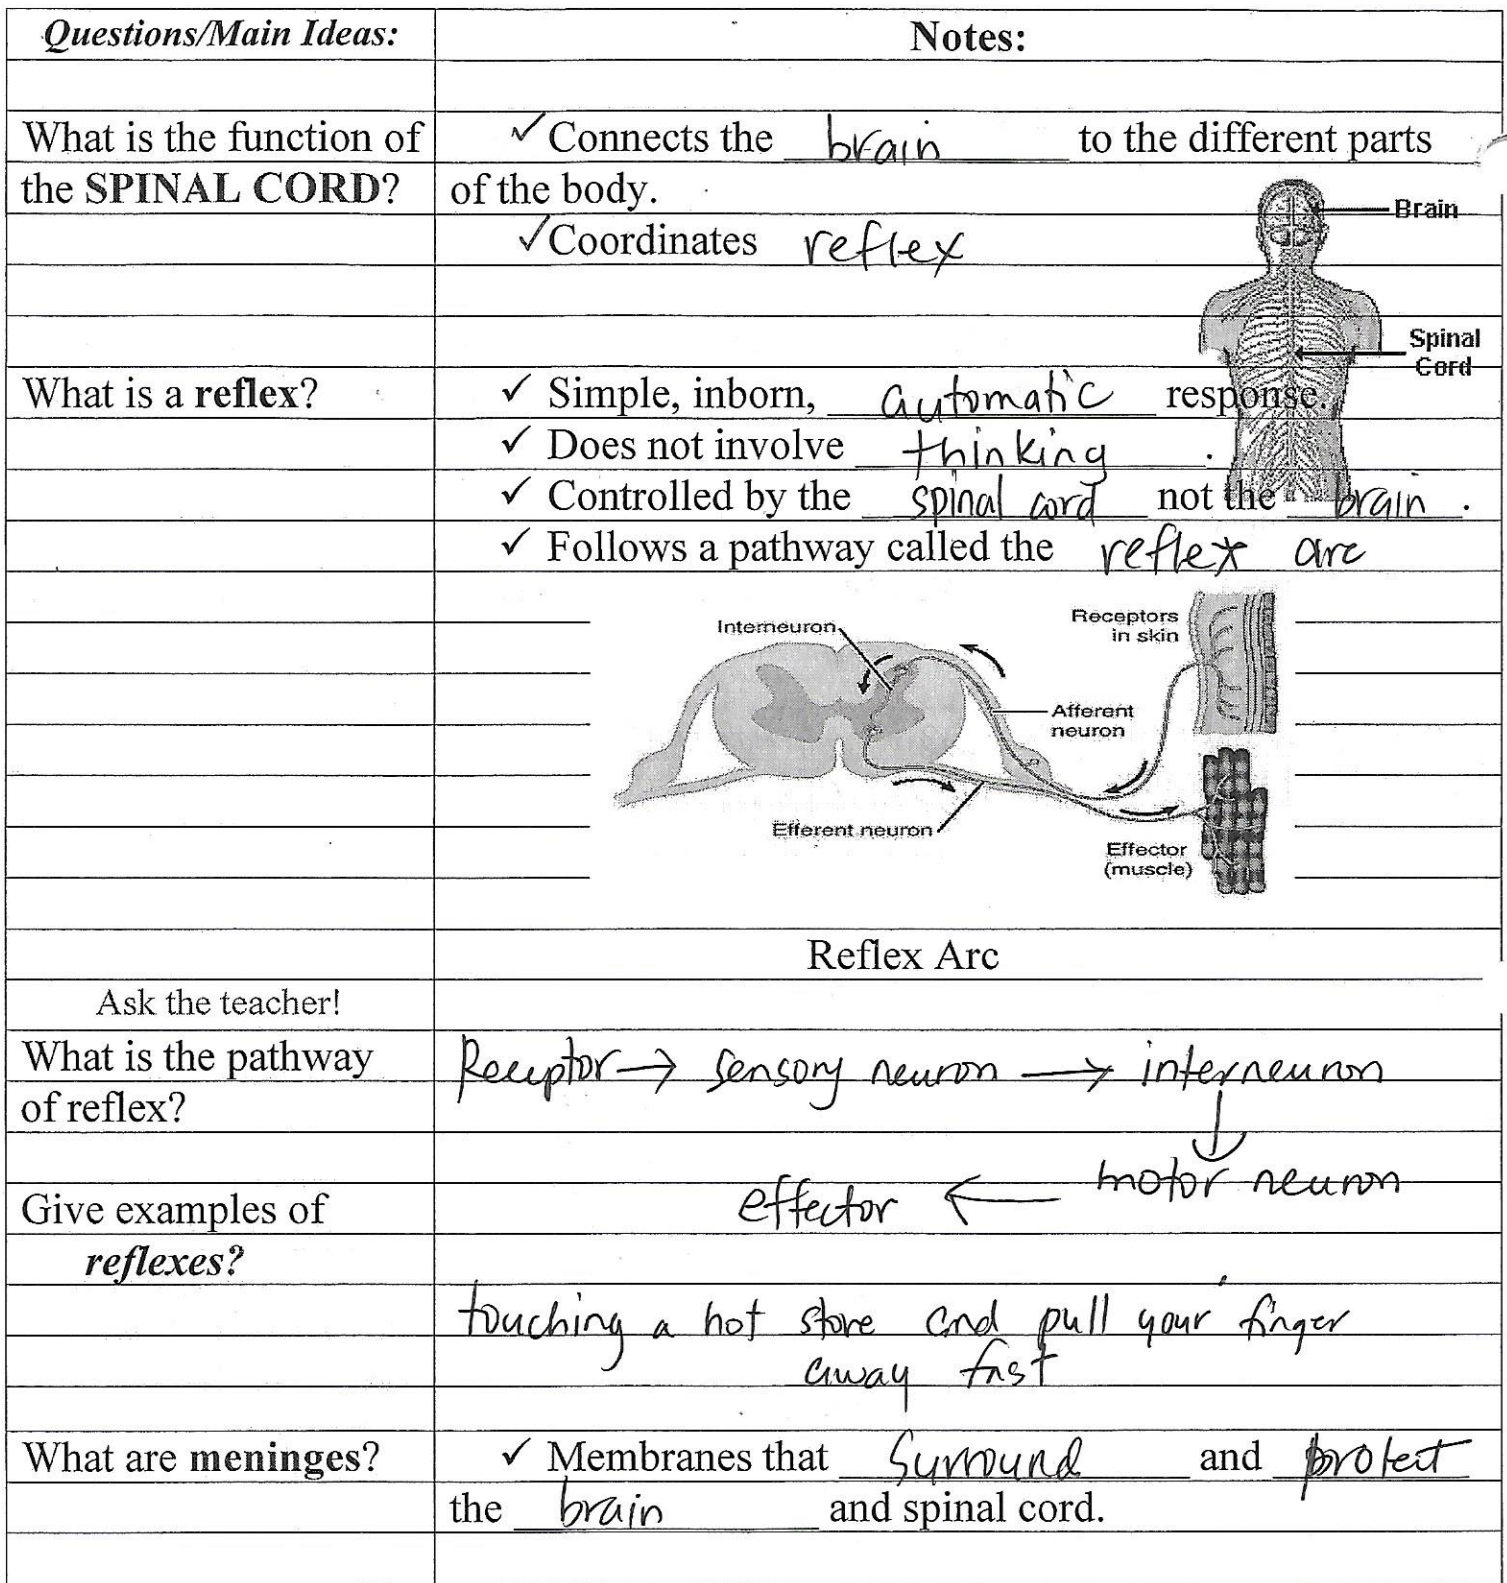 Questions/Main Ideas:
Notes:
What is the function of
the SPINAL CORD?
✓ Connects the brain to the different parts
of the body.
✓ Coordinates reflex
Brain
Spinal
Cord
What is a reflex?
✓ Simple, inborn, automatic response.
✓ Does not involve thinking.
✓ Controlled by the spinal cord not the brain.
✓ Follows a pathway called the reflex arc
Interneuron
Receptors
in skin
Afferent
neuron
Efferent neuron
Effector
(muscle)
Reflex Arc
Ask the teacher!
What is the pathway
of reflex?
Receptor → sensory neuron → interneuron
↓
effector ← motor neuron
Give examples of
reflexes?
touching a hot stove and pull your finger
away fast
What are meninges?
✓ Membranes that surround and protect
the brain and spinal cord.